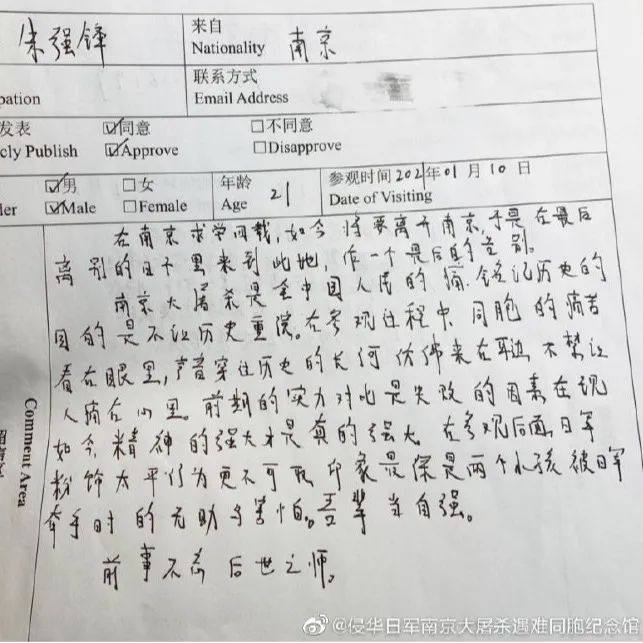 朱强锋
来自
Nationality 南京
联系方式
Email Address
pation
发表 ☑同意 □不同意
cly Publish ☑Approve □Disapprove
☑男 □女 年龄 21 参观时间 2021年01月10日
der ☑Male □Female Age Date of Visiting
在南京求学四载,如今将要离开南京,于是在最后
离别的日子里来到此地,作一个最后的告别。
南京大屠杀是全中国人民的痛,铭记历史的
目的是不让历史重演。在参观过程中,同胞的痛苦
看在眼里,声音穿过历史的长河仿佛来在耳边,不禁让
人痛在心里。前期的实力对比是失败的因素在现
如今,精神的强大才是真的强大。在参观后面,日军
粉饰太平行为更不可取,印象最深是两个小孩被日军
牵手时的无助与害怕。吾辈当自强。
前事不忘 后世之师。
Comment Area
@侵华日军南京大屠杀遇难同胞纪念馆